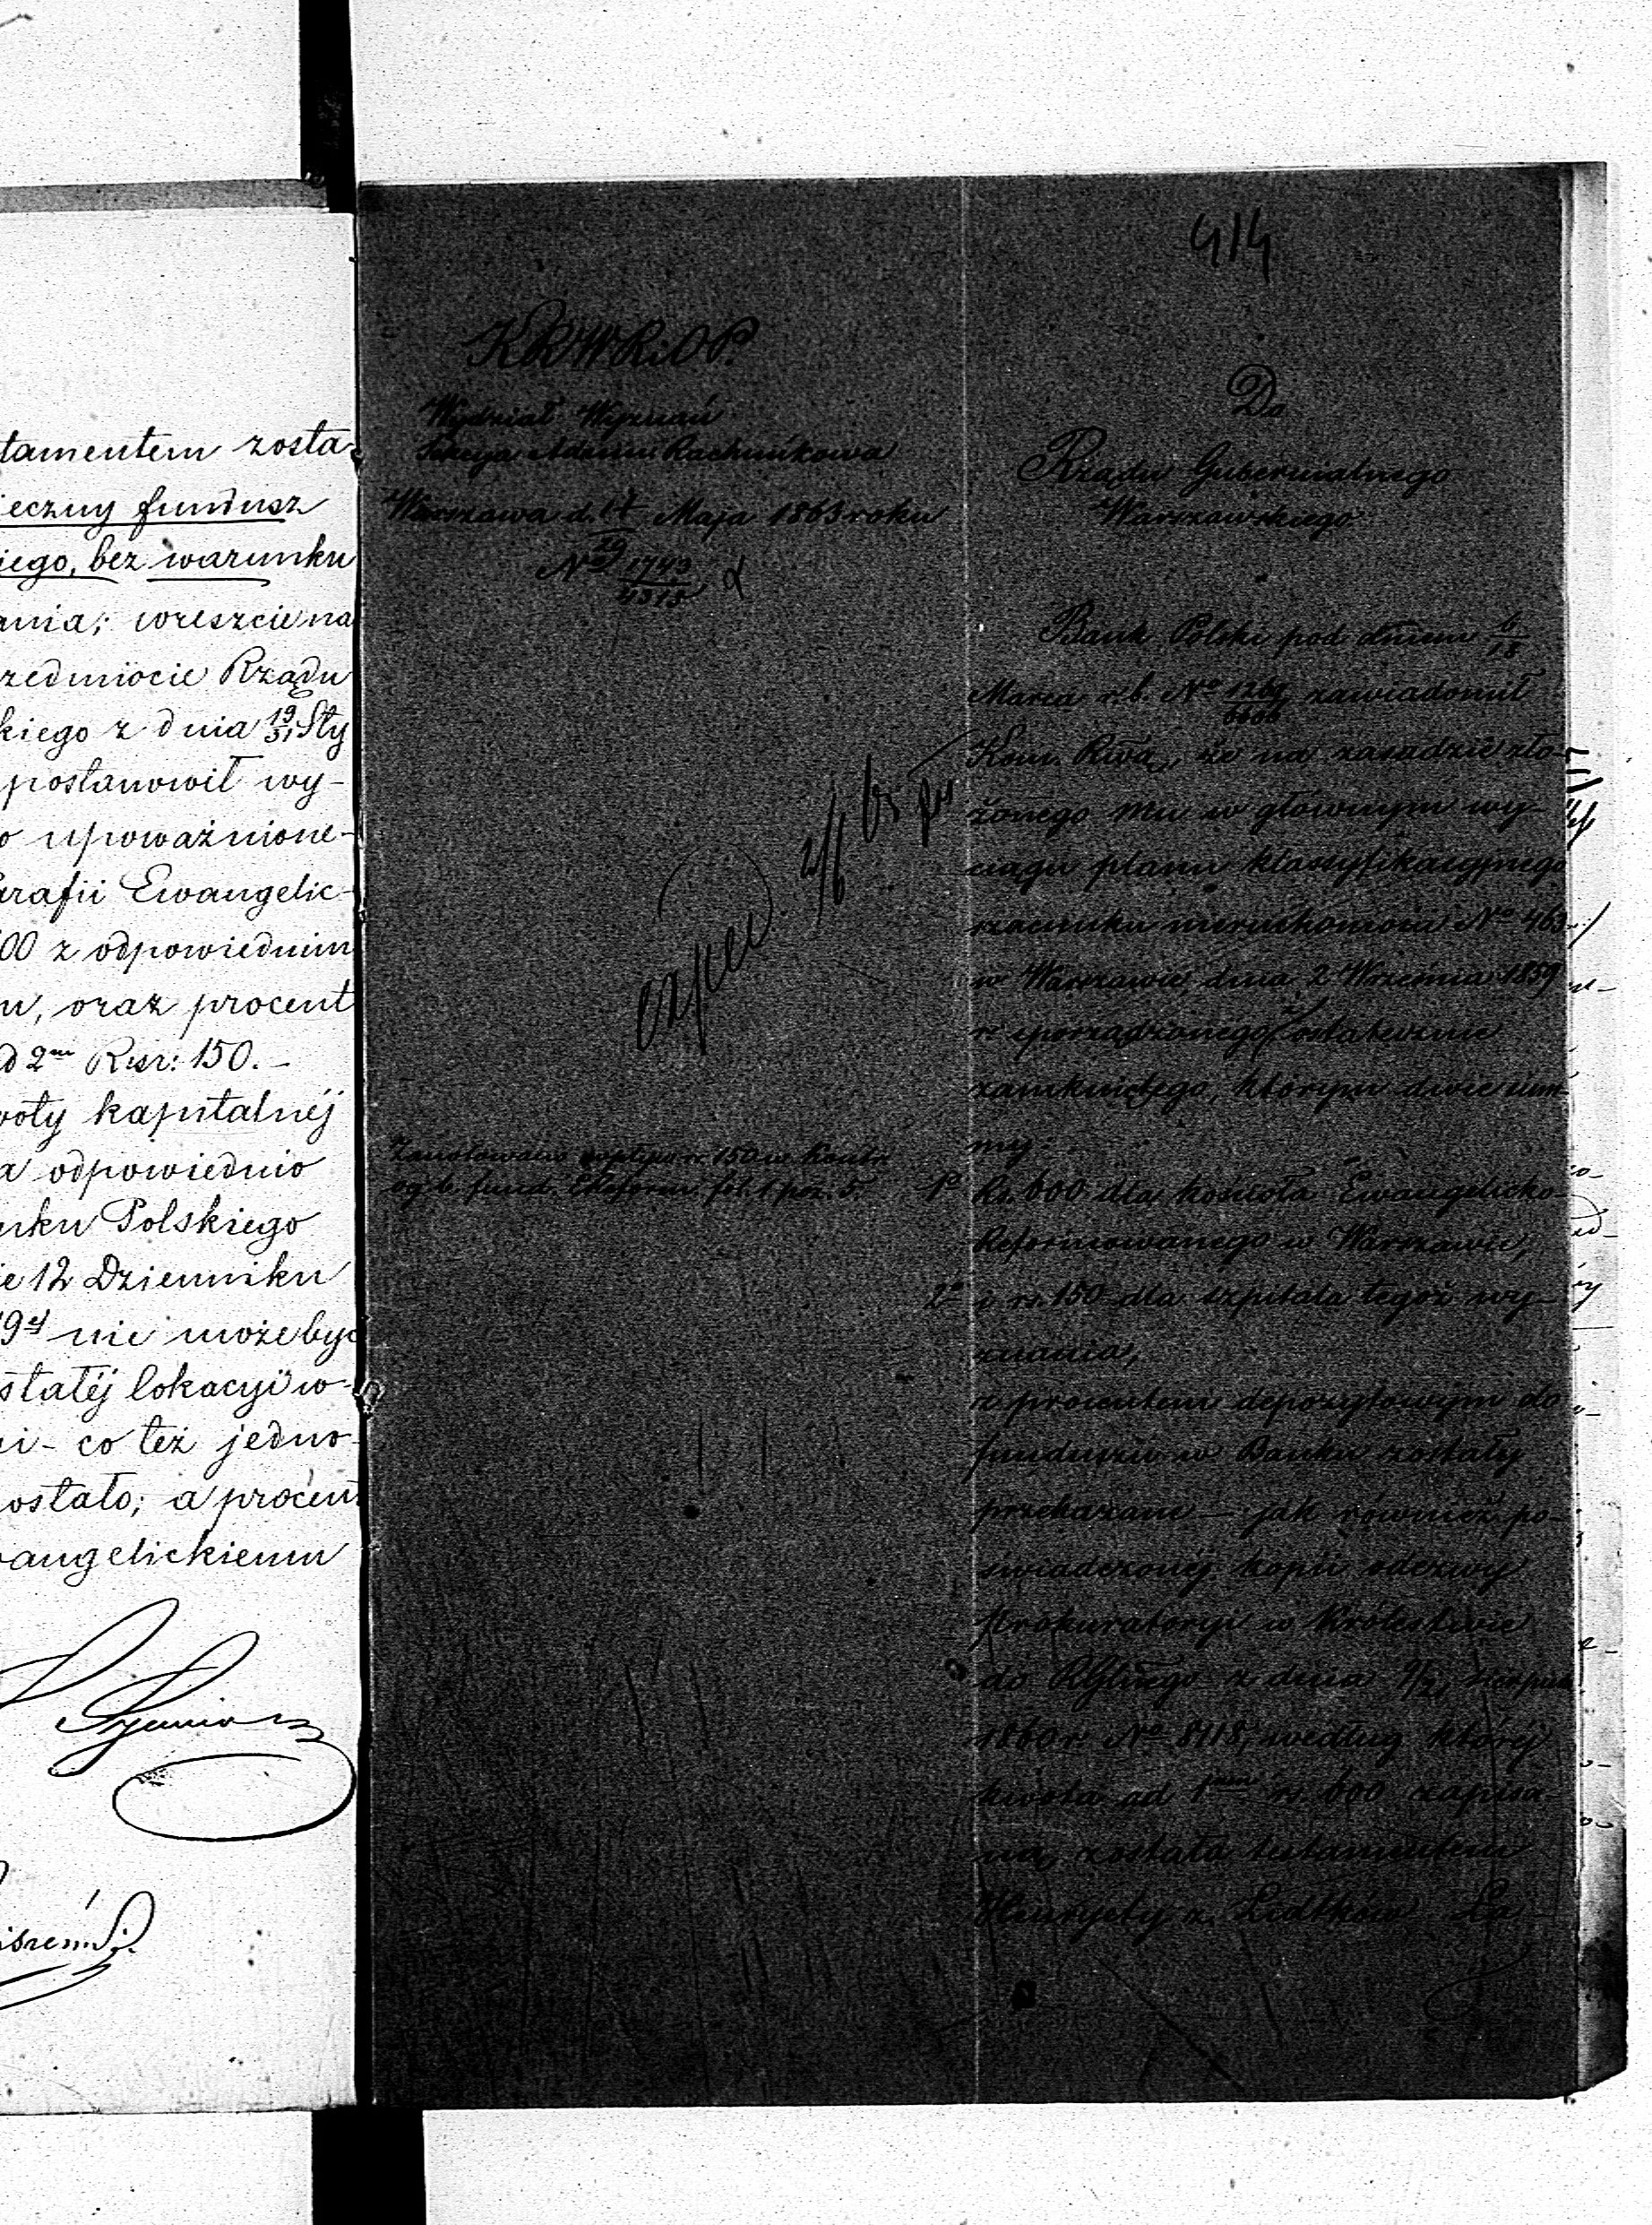 tamentem zosta-
ieczny fundusz
iego, bez warunku
ania; wreszcie na
rzedmiocie Rządu
kiego z dnia 19/31 Sty
postanowił wy-
o upoważnione-
arafii Ewangelic-
00 z odpowiednim
m, oraz procent
d 2m Rsr: 150. –
woty kapitalnéj
a odpowiednio
nku Polskiego
ie 12 Dziennika
nie może być
stałéj lokacyi w-
i – co też jedno-
ostało; a procent
wangelickiemu
414
KRWRiOP.
Wydział Wyznań
Sekcya Admin: Rachunkowa
Warszawa d. 17/29 Maja 1863 roku
No 1743/4313
Zanotowano rs 150 w Konto
fund. fol. 1 poz. 5.
Do
Rządu Gubernialnego
Warszawskiego
Bank Polski pod dniem 6/18
Marca r. b. No 1269/6606 zawiadomił
Kom. Rwą, że na zasadzie zło-
żonego mu w głównym wy-
ciągu planu klassyfikacyjnego
szacunku nieruchomości No 463
w Warszawie dnia 2 Września 1859
r. sporządzonego i ostatecznie
zamkniętego, którym dwie sum-
my
1o Rs. 600 dla kościoła Ewangelicko
Reformowanego w Warszawie,
2o i rs. 150 dla szpitala tegoż wy-
znania,
z procentem depozytowym do
funduszu w Banku zostały
przekazane – jak również po-
świadczonéj kopii odezwy
prokuratoryi w Królestwie
do z dnia 9/21 sierpnia
1860 r. No 8118, według któréj
kwota ad 1m rs. 600 zapisa-
ną została testamentem
Henryety z